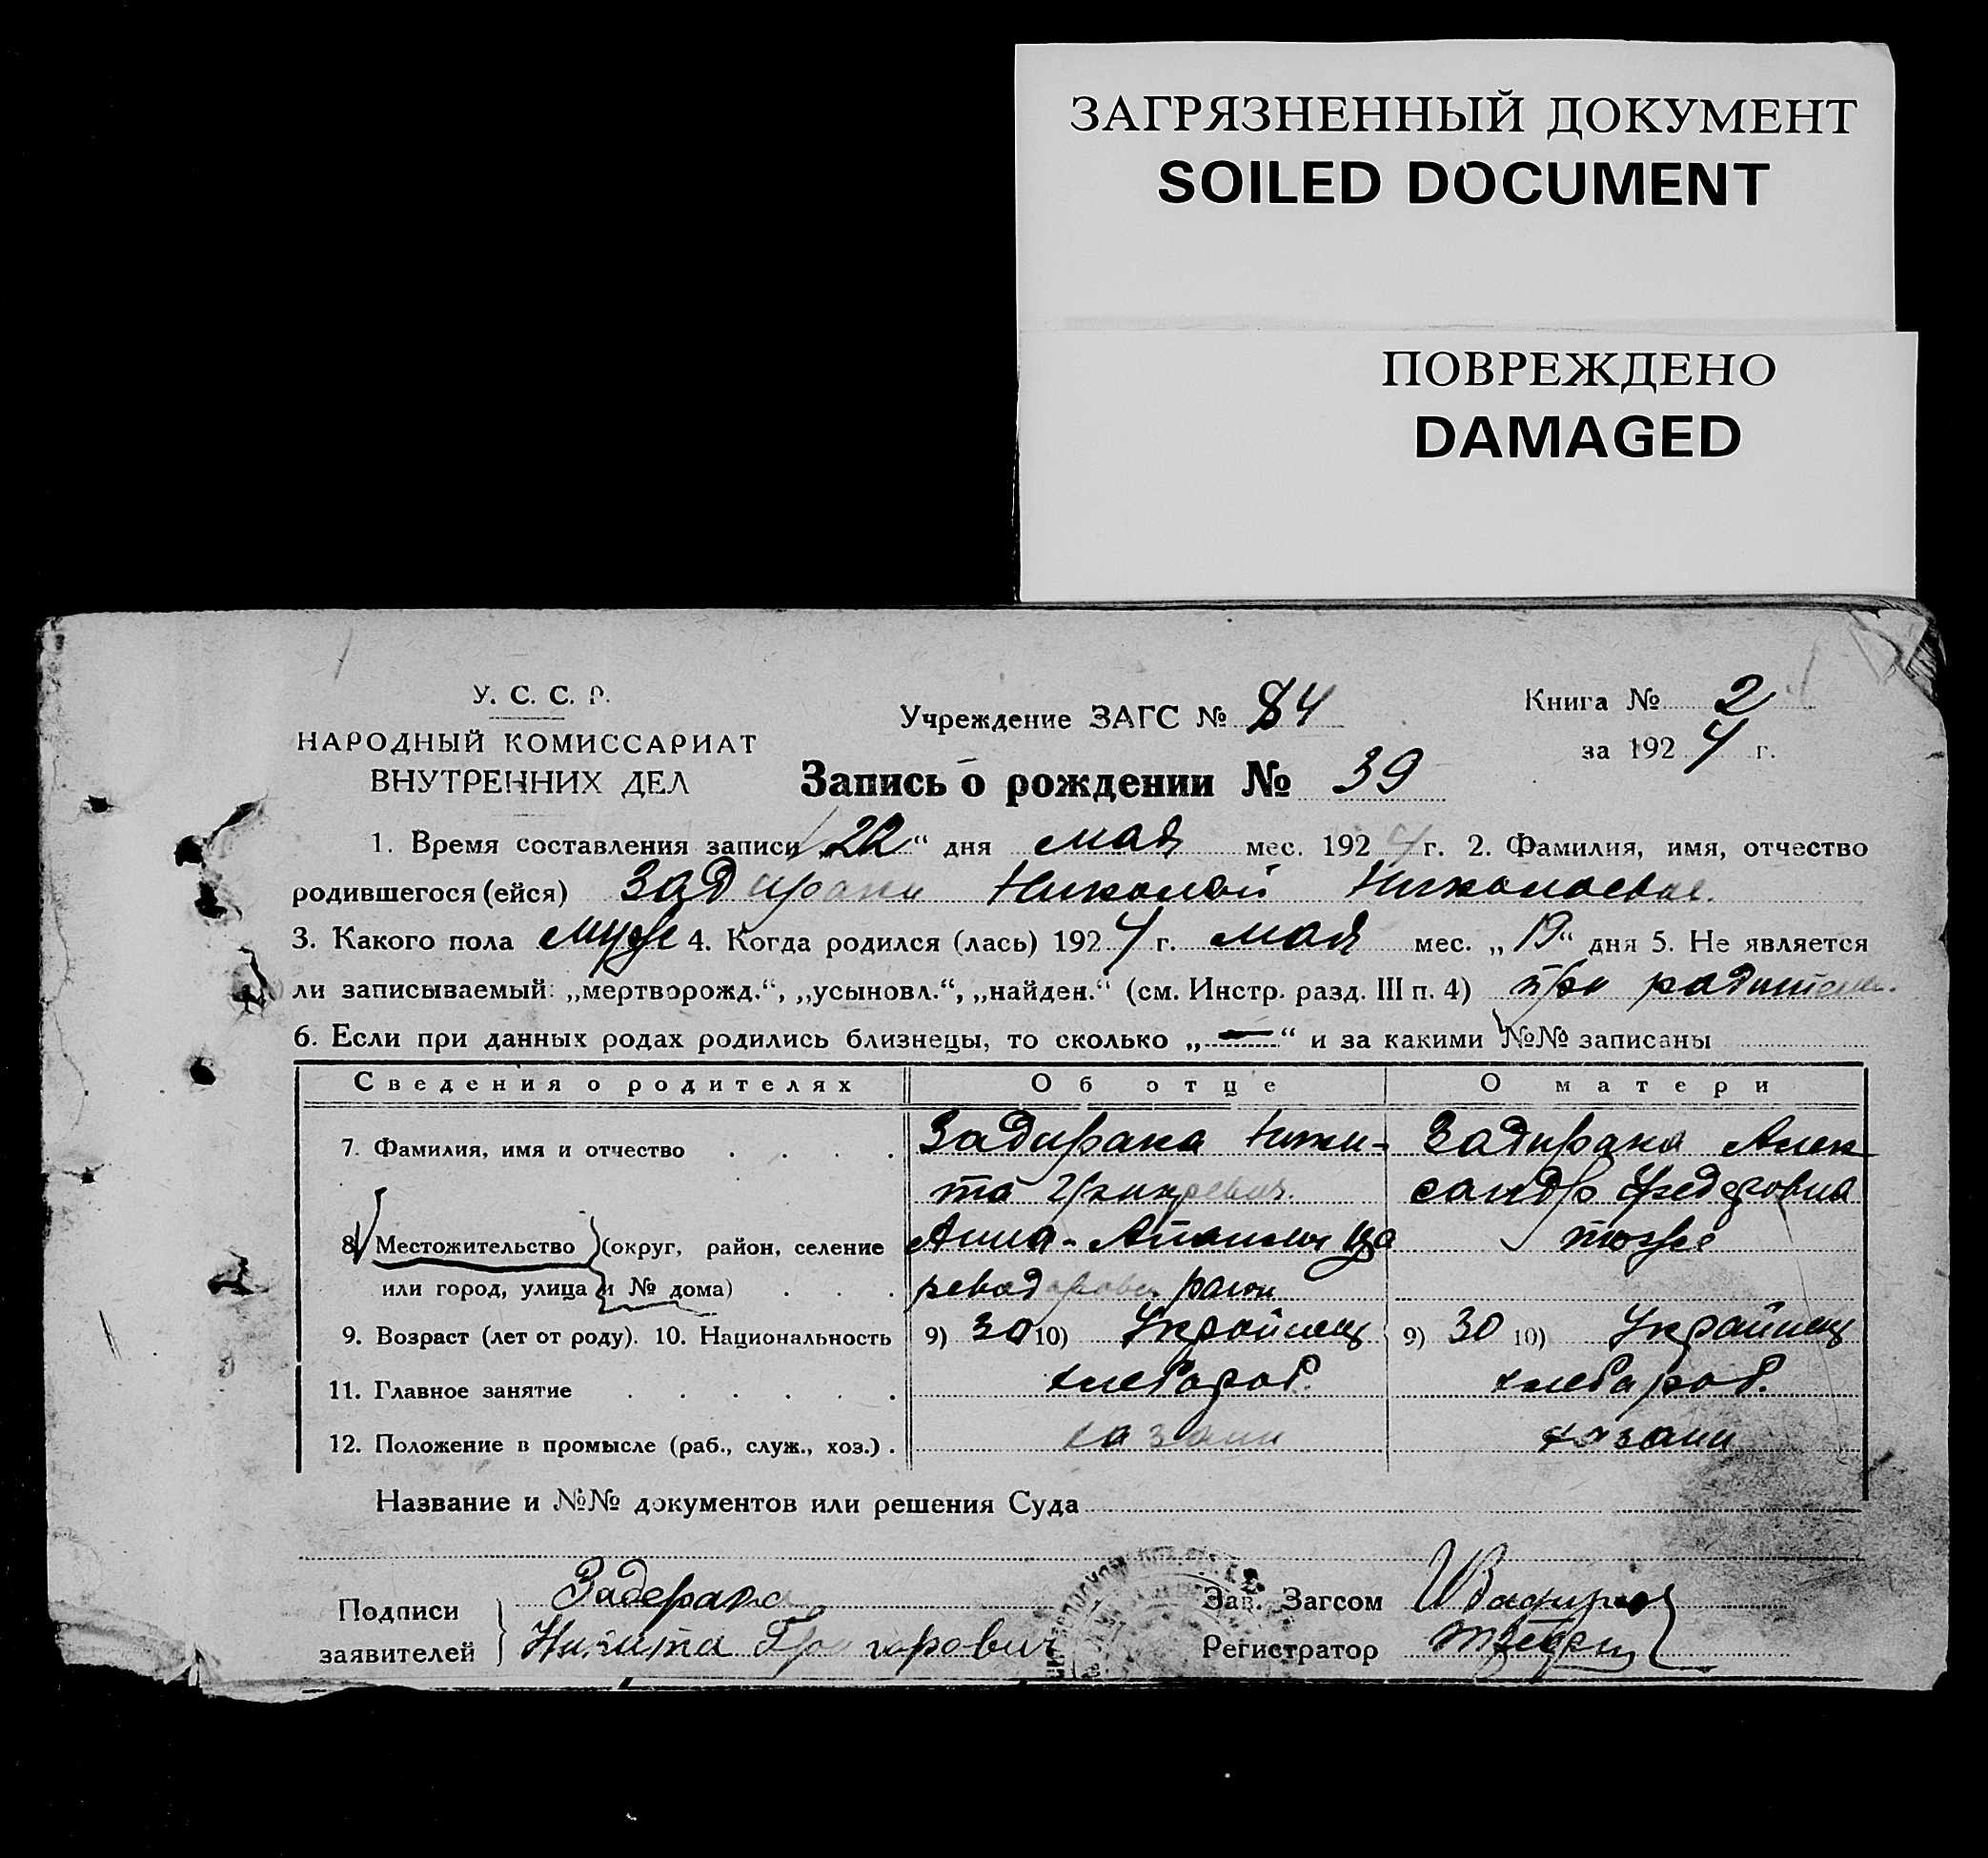 ЗАГРЯЗНЕННЫЙ ДОКУМЕНТ
SOILED DOCUMENT
ПОВРЕЖДЕНО
DAMAGED
У. С. С. Р.
НАРОДНЫЙ КОМИССАРИАТ
ВНУТРЕННИХ ДЕЛ
Учреждение ЗАГС № 84
Книга № 2
за 1924 г.
Запись о рождении № 39
1. Время составления записи „22“ дня мая мес. 1924 г. 2. Фамилия, имя, отчество
родившегося (ейся) Задирака Николай
3. Какого пола муж 4. Когда родился (лась) 1924 г. мая мес. „19“ дня 5. Не является
ли записываемый: „мертворожд.“, „усыновл.“, „найден.“ (см. Инстр. разд. III п. 4) при
6. Если при данных родах родились близнецы, то сколько „—“ и за какими №№ записаны
Сведения о родителях Об отце О матери
7. Фамилия, имя и отчество . . . . Задирака Ники- Задирака Алек
та сандр Федоровна
8. Местожительство (округ, район, селение Анно- тоже
или город, улица и № дома) . . . район
9. Возраст (лет от роду). 10. Национальность 9) 30 10) Украйнец 9) 30 10) Украйнец
11. Главное занятие . . . . . . хлебороб. хлебороб.
12. Положение в промысле (раб., служ., хоз.) . хазаин хазаин
Название и №№ документов или решения Суда
Подписи заявителей
Задерака
Никита Григорович
Зав. Загсом
Регистратор